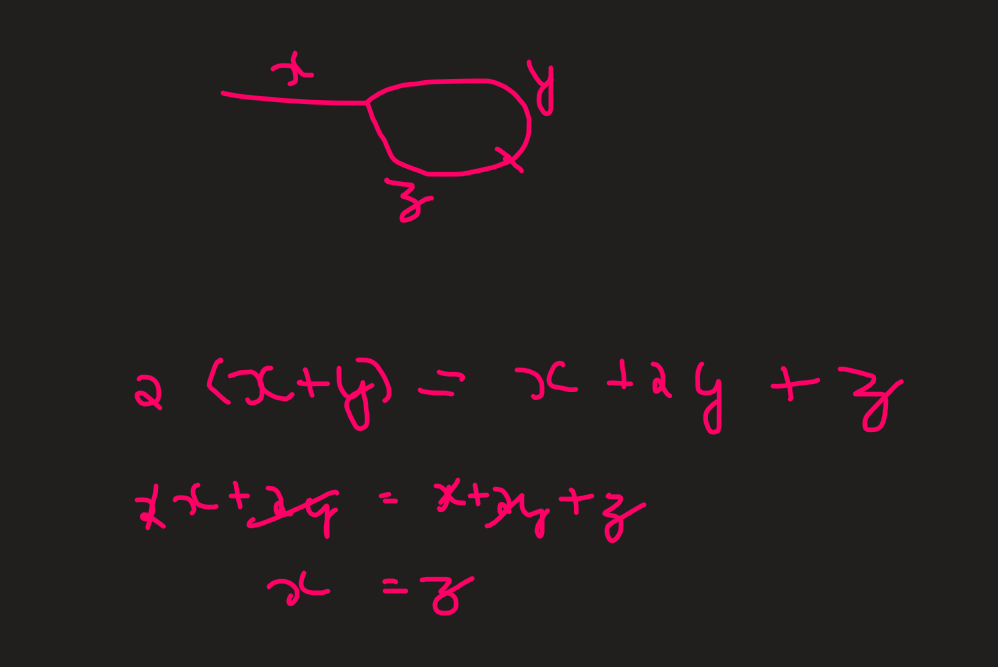 x
y
z
2 (x+y) = x + 2y + z
2x + 2y = x + 2y + z
x = z